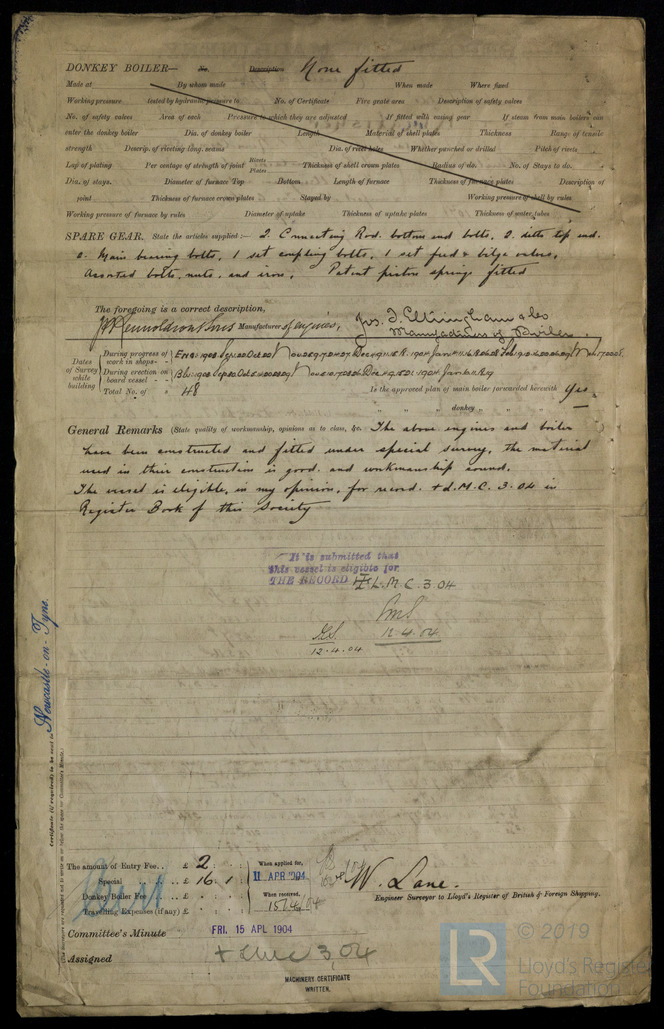 DONKEY BOILER— No. Description None fitted
Made at By whom made When made Where fixed
Working pressure tested by hydraulic pressure to No. of Certificate Fire grate area Description of safety valves
No. of safety valves Area of each Pressure to which they are adjusted If fitted with easing gear If steam from main boilers can
enter the donkey boiler Dia. of donkey boiler Length Material of shell plates Thickness Range of tensile
strength Descrip. of riveting long. seams Dia. of rivet holes Whether punched or drilled Pitch of rivets
Lap of plating Per centage of strength of joint Rivets Plates Thickness of shell crown plates Radius of do. No. of Stays to do.
Dia. of stays. Diameter of furnace Top Bottom Length of furnace Thickness of furnace plates Description of
joint Thickness of furnace crown plates Stayed by Working pressure of shell by rules
Working pressure of furnace by rules Diameter of uptake Thickness of uptake plates Thickness of water tubes
SPARE GEAR. State the articles supplied:— 2. Connecting Rod. bottom end bolts, 2. ditto top end.
2. Main bearing bolts, 1 set coupling bolts, 1 set feed & bilge valves,
Assorted bolts, nuts, and iron, Patent piston springs fitted
The foregoing is a correct description,
Manufacturer of engines, Jos. T. Eltringham & Co
Manufacturers of Boiler.
Dates of Survey while building
During progress of work in shops - -
During erection on board vessel - - -
Total No. of 48 Is the approved plan of main boiler forwarded herewith Yes
" " donkey " "
General Remarks (State quality of workmanship, opinions as to class, &c. The above engines and boiler
have been constructed and fitted under special survey, the material
used in their construction is good. and workmanship sound.
The vessel is eligible, in my opinion, for record. + L.M.C. 3.04 in
Register Book of this Society
It is submitted that
this vessel is eligible for
THE RECORD + L.M.C. 3.04
12.4.04
12.4.04
Newcastle-on-Tyne.
Certificate (if required) to be sent to
The amount of Entry Fee.. £ 2 : : When applied for,
Special .. .. £ 16 . 1 11 APR 1904
Donkey Boiler Fee .. £ : : When received,
Travelling Expenses (if any) £ : : 15/4/04
W. Lane.
Engineer Surveyor to Lloyd's Register of British & Foreign Shipping.
Committee's Minute FRI. 15 APL 1904
Assigned + LMC 3,04
MACHINERY CERTIFICATE
WRITTEN.
LR
© 2019
Lloyd's Register
Foundation